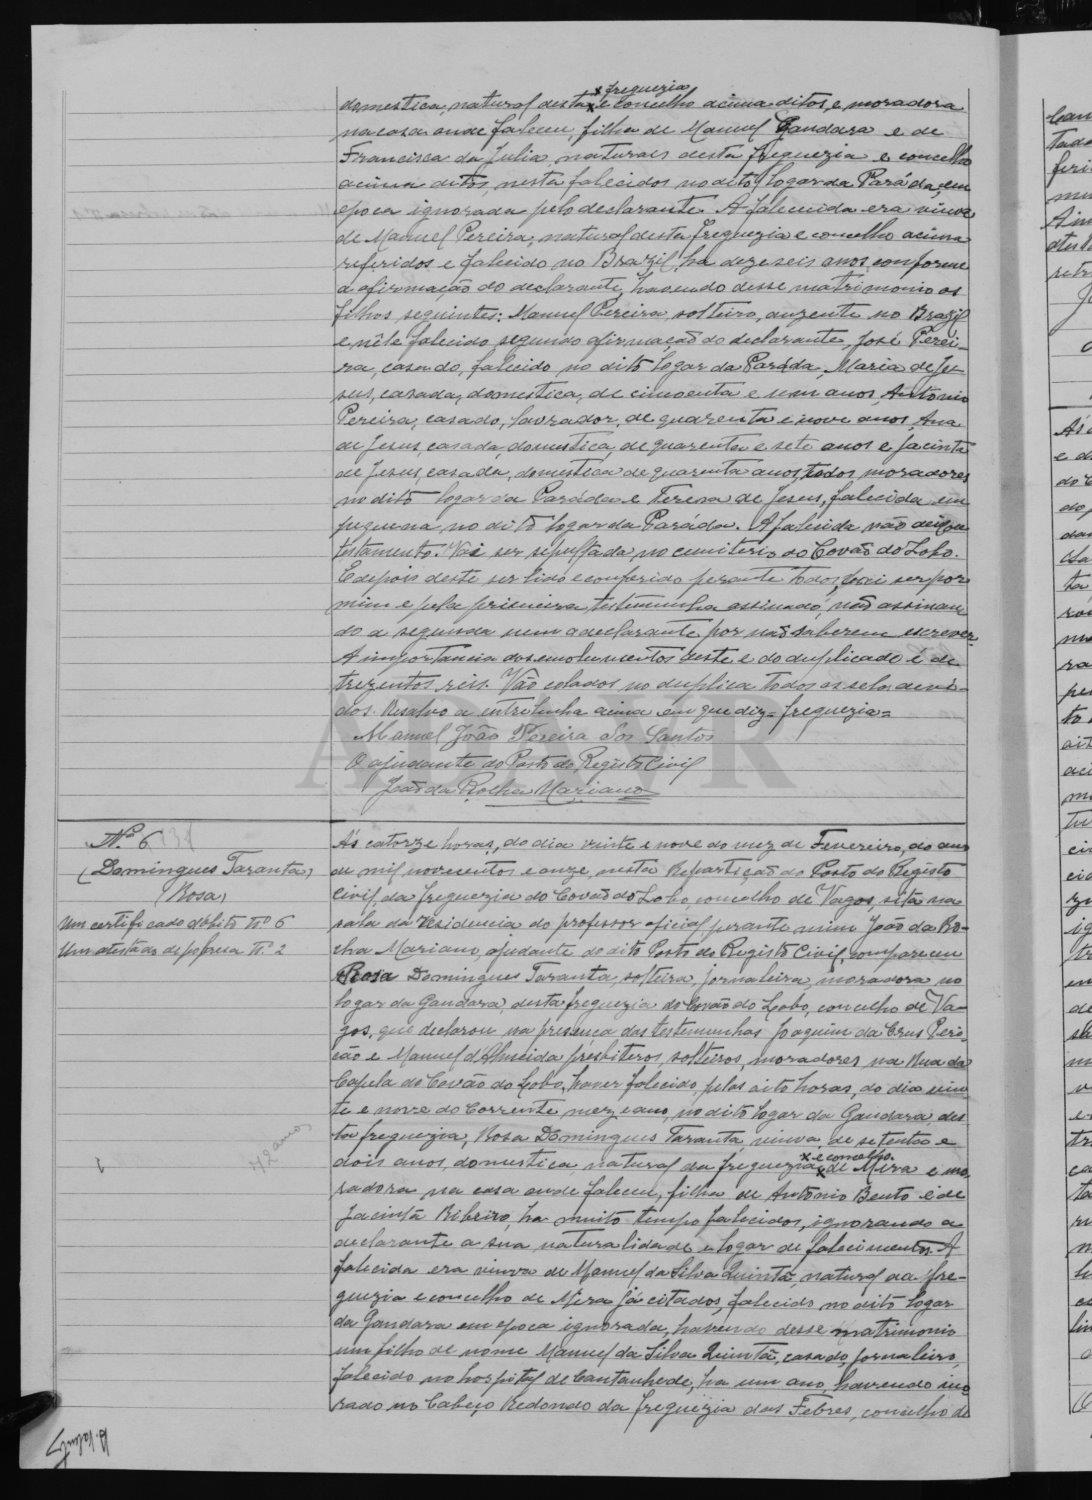 domestica, natural desta x freguezia
x e concelho acima ditos, e moradora
na casa onde faleceu, filha de Manuel Gandara e de
Francisca da Julia, naturaes desta freguezia e concelho
acima ditos, nesta falecidos no dito logar da Paráda, em
epoca ignorada pelo declarante. A falecida era viuva
de Manuel Pereira, natural desta freguezia e concelho acima
referidos e falecido no Brazil, ha dezeseis anos, conforme
a afirmação do declarante, havendo desse matrimonio os
filhos seguintes: Manuel Pereira, solteiro, auzente no Brazil
e nêle falecido, segundo afirmação do declarante, José Perei-
ra, casado, falecido no dito logar da Paráda, Maria de Je-
sus, casada, domestica, de cincoenta e um anos, Antonio
Pereira, casado, lavrador, de quarenta e nove anos, Ana
de Jesus, casada, domestica, de quarenta e sete anos e Jacinta
de Jesus, casada, domestica de quarenta anos, todos moradores
no dito logar da Paráda e Tereza de Jesus, falecida em
pequena, no dito logar da Paráda. A falecida não deixou
testamento. Vai ser sepultada, no cemiterio do Covão do Lobo.
E depois deste ser lido e conferido perante todos, vai ser por
mim e pela primeira testemunha assinado, não assinan-
do a segunda nem a declarante por não saberem escrever.
A importancia dos emolumentos deste e do duplicado é de
trezentos reis. Vão colados no duplica todos os selos devi-
dos. Resalvo a entrelinha acima em que diz = freguezia =
Manuel João Pereira dos Santos
O ajudante do Posto do Registo Civil
João da Rocha Mariano
N.º 6
(Domingues Taranta,
Rosa)
Um certificado d'obito N.º 6
Um atestado de pobreza N.º 2
72 anos
Ás catorze horas, do dia vinte e nove do mez de Fevereiro, do ano
de mil novecentos e onze, nesta Repartição do Posto do Registo
Civil, da freguezia do Covão do Lobo, concelho de Vagos, sita na
sala da Residencia do professor oficial, perante mim João da Ro-
cha Mariano, ajudante do dito Posto do Registo Civil, compareceu
Rosa Domingues Taranta, solteira, jornaleira, moradora no
logar da Gandara, desta freguezia do Covão do Lobo, concelho de Va-
gos, que declarou na presença das testemunhas Joaquim da Cruz Peri-
cão e Manuel d'Almeida, presbiteros, solteiros, moradores na Rua da
Capela do Covão do Lobo, haver falecido, pelas oito horas, do dia vin-
te e nove do corrente mez e ano, no dito logar da Gandara, des-
ta freguezia, Rosa Domingues Taranta, viuva, de setenta e
dois anos, domestica, natural da freguezia x e concelho x de Mira e mo-
radora, na casa onde faleceu, filha de Antonio Bento e de
Jacinta Ribeiro, ha muito tempo falecidos, ignorando a
declarante a sua naturalidade e logar de falecimento. A
falecida era viuva de Manuel da Silva Quintã, natural da fre-
guezia e concelho de Mira já citados, falecido no dito logar
da Gandara em epoca ignorada, havendo desse matrimonio
um filho de nome Manuel da Silva Quintã, casado, jornaleiro,
falecido no hospital de Cantanhede, ha um ano, havendo mo-
rado no Cabeço Redondo da freguezia das Febres, concelho de
ADAVR